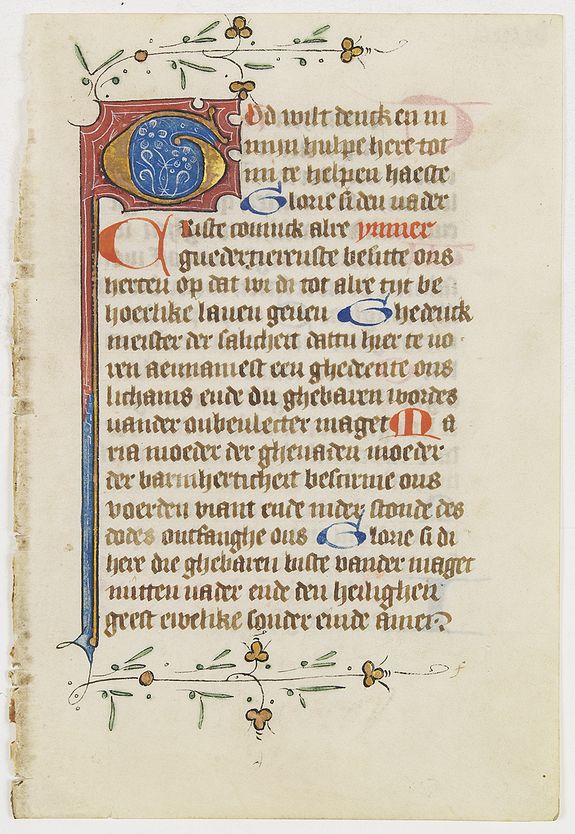 God wilt denck en in
miin hulpe here tot
mi te helpen haeste
Glorie si den vader
Criste coninck alre ymmer
guedertierenste besitte ons
herten op dat wi di tot alre tyt be
hoerlike laven geven Ghedenck
meister der salicheit dattu hier te vo
ren aennamest een ghedeente ons
lichams ende du ghebaren wordes
vander onbevlecter maget Ma
ria moeder der ghenaden moeder
der barmherticheit bescirme ons
voerden viant ende inder stonde des
dodes ontfanghe ons Glorie si di
here die ghebaren biste vander maget
mitten vader ende den heilighen
geest ewelike sonder einde amen